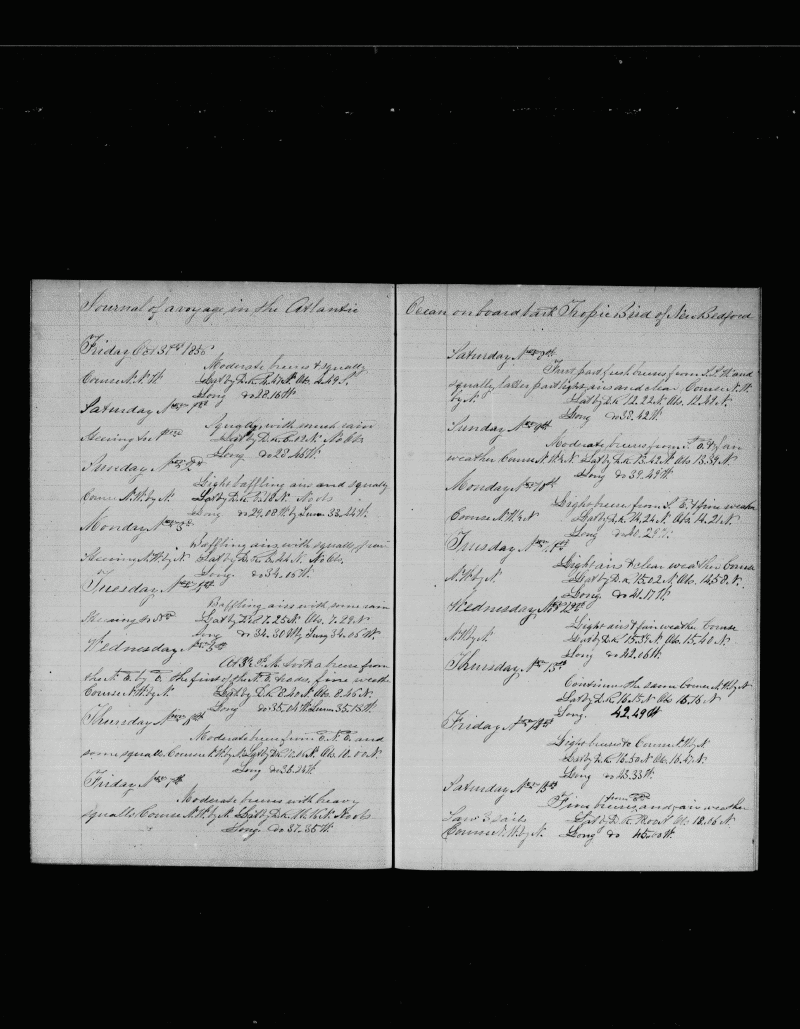 Journal of a voyage in the Atlantic
Friday Oct 31st 1856
Moderate breeze & squally
Course N.N.W. Lat by D.R.
Long do 28.16 W.
Saturday Nov 1st
Squally with much rain
Steering Lat by D.R. No Obs
Long do 28.46 W.
Sunday Nov 2nd
Light baffling airs and squally
Course N.W. by N. Lat by D.R. No obs
Long do 29.08 W by Lunar 33.24 W.
Monday Nov 3rd
Baffling airs with squalls of rain
Steering N.W. by N. Lat by D.R. No Obs.
Long. do 34.05 W.
Tuesday Nov 4th
Baffling airs with some rain
Steering Lat by D.R. 7.25 N. Obs. 7.29 N.
Long do 34.30 W by Lunar 34.06 W.
Wednesday Nov 5th
At P.M. took a breeze from
the N.E. by E. the first of the N.E. trades, fine weather
Course N.W. by N. Lat by D.R. 8.40 N. Obs. 8.46 N.
Long do 35.04 W Lunar 35.18 W.
Thursday Nov 6th
Moderate breeze from E.N.E. and
some squalls. Course N.W. by N. Lat by D.R. Obs. 10.00 N.
Long do 36.26 W.
Friday Nov 7th
Moderate breeze with heavy
squalls Course N.W. by N. Lat by D.R. No obs
Long. do 37.35 W.
Ocean on board bark Tropic Bird of New Bedford
Saturday Nov 8th
First part fresh breeze from and
squally, latter part light airs and clear. Course N.W.
by N. Lat by D.R. 12.22 N. Obs. 12.48 N.
Long do 38.42 W.
Sunday Nov 9th
Moderate breeze from & fair
weather Course N.W. by N. Lat by D.R. 13.42 N. Obs 13.39 N.
Long do 39.49 W.
Monday Nov 10th
Light breeze from S.E. & fine weather
Course N.W. by N Lat by D.R. 14.24 N. Obs. 14.21 N.
Long do 40.28 W.
Tuesday Nov 11th
Light airs & clear weather Course
N.W. by N. Lat by D.R. 15.02 N. Obs. 14.58 N.
Long. do 41.17 W.
Wednesday Nov 12th
Light airs & fair weather Course
N.W. by N. Lat by D.R. 15.39 N. Obs. 15.40 N.
Long do 42.06 W.
Thursday Nov 13th
Continues the same Course N.W. by N
Lat by D.R. 16.15 N Obs 16.16 N
Long. 42.49 W
Friday Nov 14th
Light breeze Course N.W. by N
Lat by D.R. 16.50 N Obs. 16.47 N.
Long do 43.33 W.
Saturday Nov 15th
Fine breeze from and fair weather
Saw 3 sails Lat by D.R. Obs. 18.16 N.
Course N.W. by N. Long do 45.00 W.